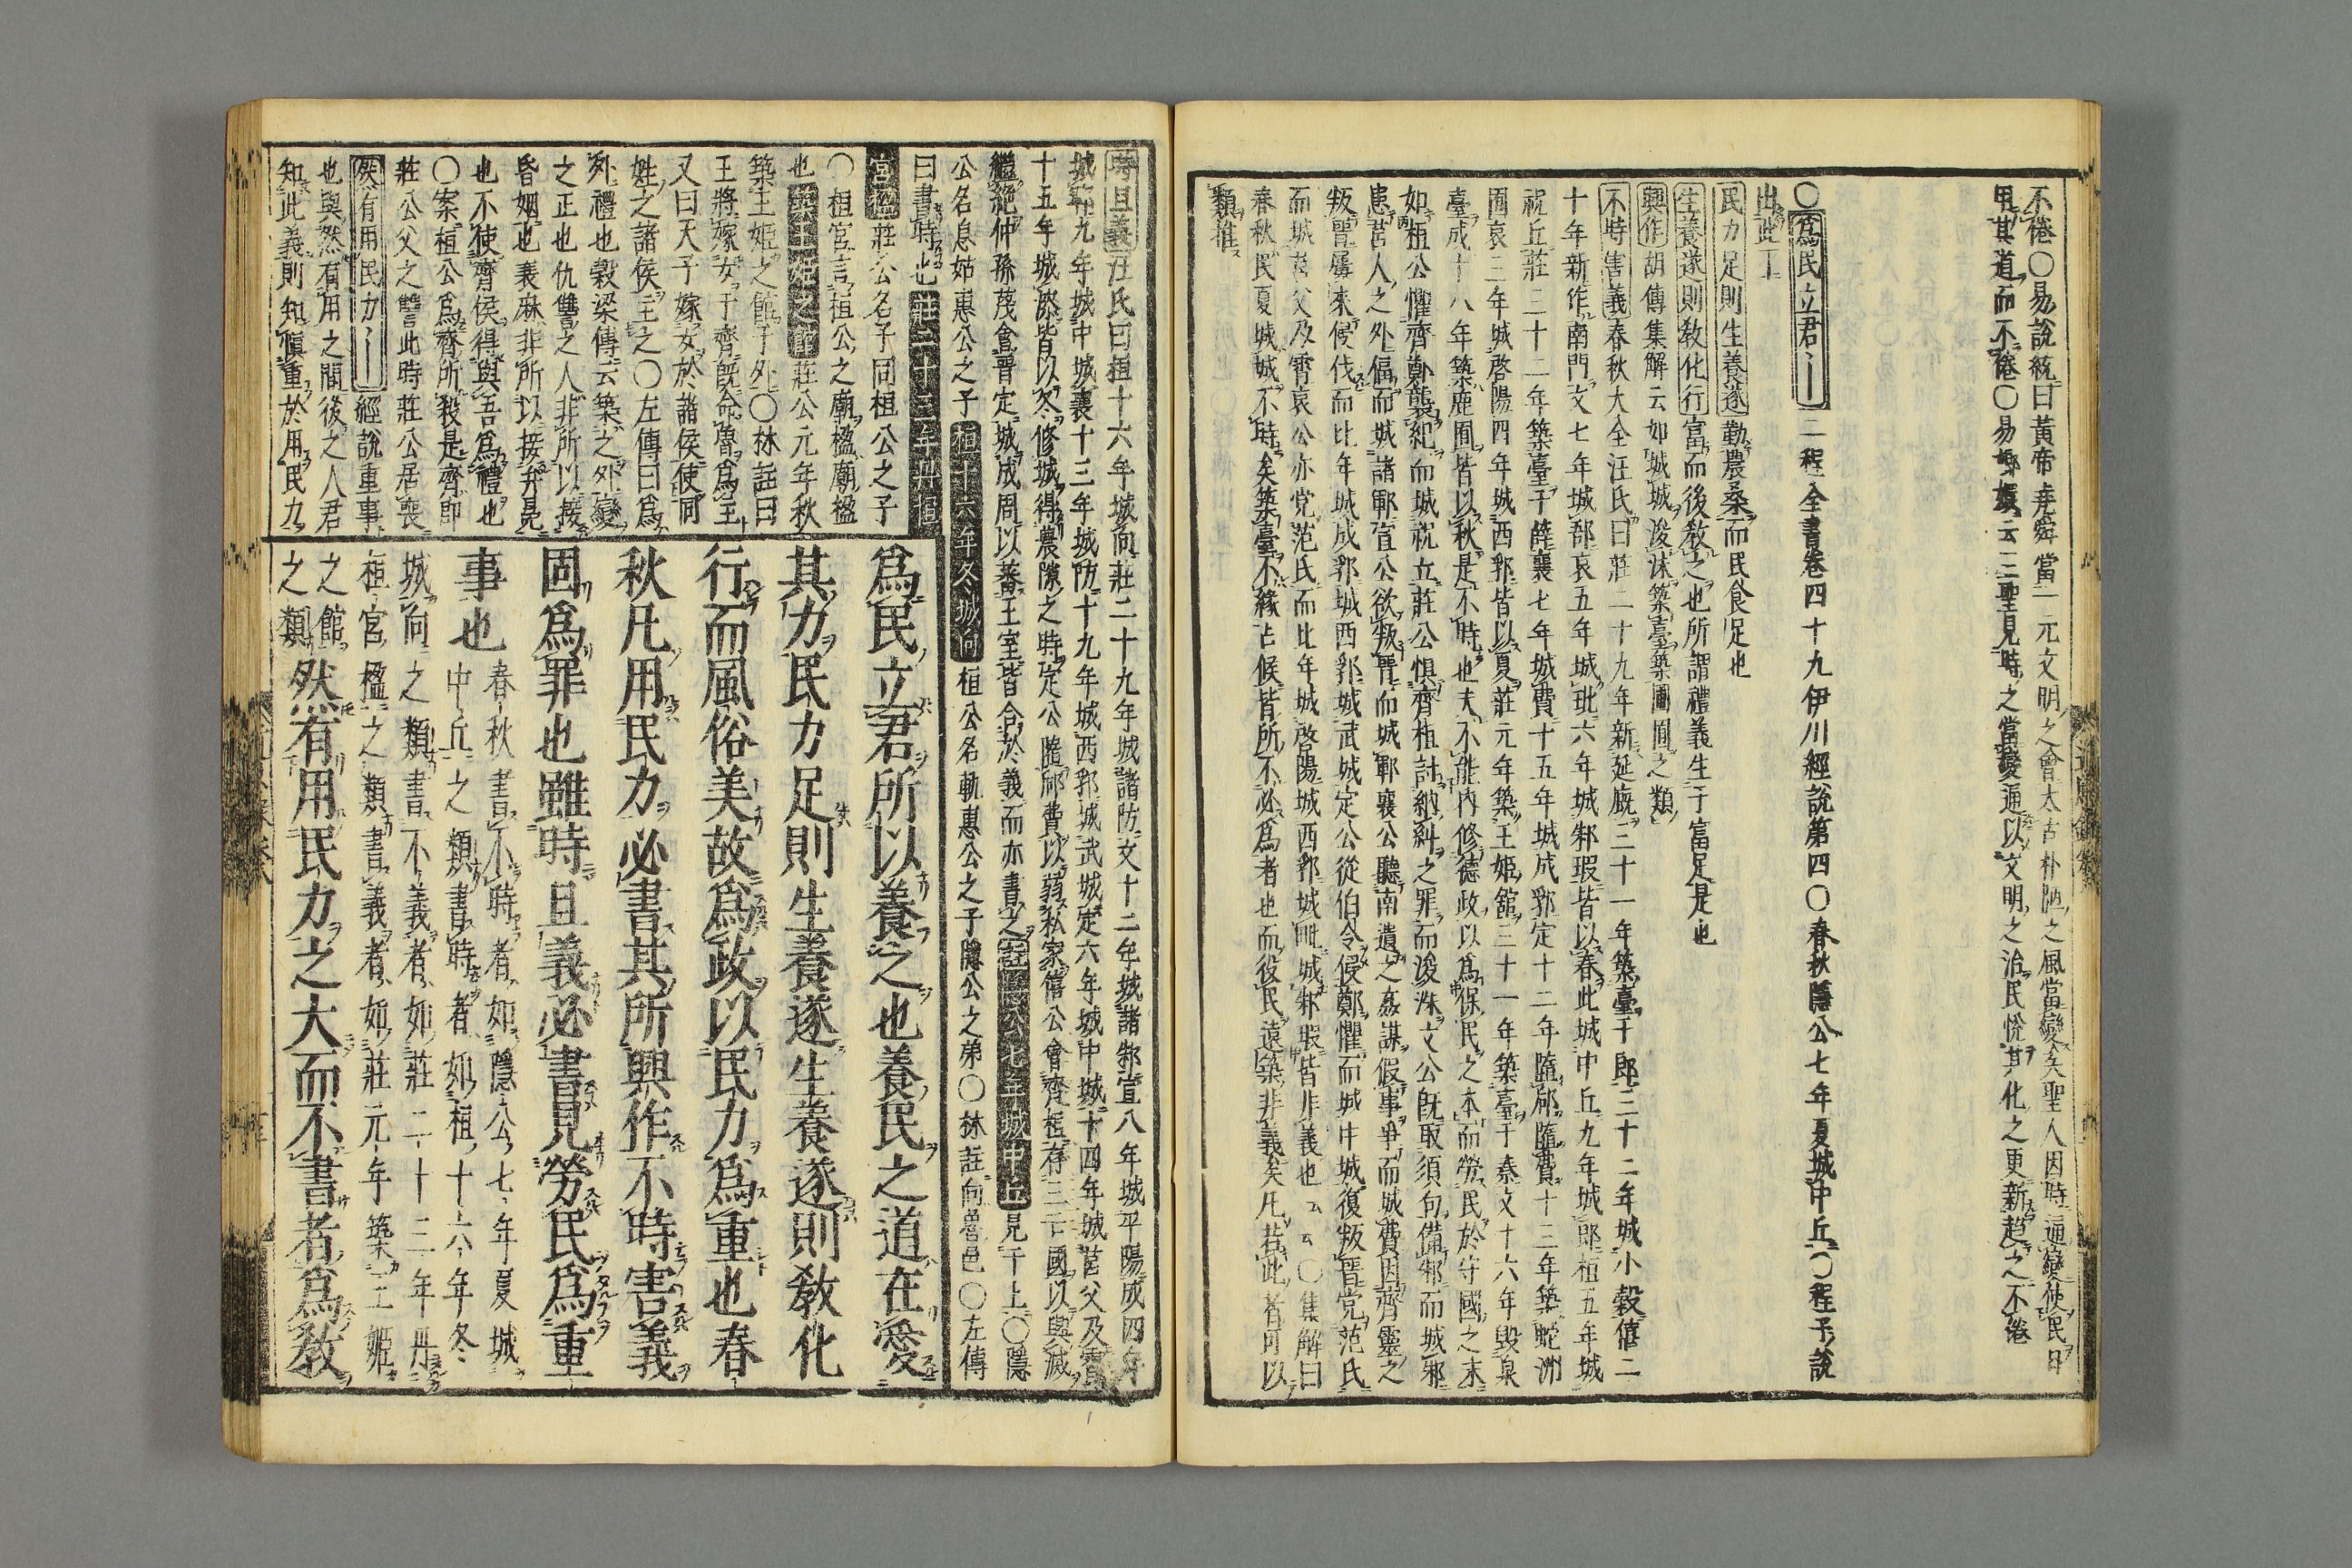 不倦〇易說統曰黃帝堯舜當一元文明之會太古朴陋之風當變矣聖人因時通變使民日
用其道而不倦〇易鄉嬛云三聖見時之當變通以文明之治民悅其化之更新趨之不倦
〇爲民立君〻二程全書卷四十九伊川經說第四〇春秋隱公七年夏城中丘〇程子說
出此下
民力足則生養遂勤農桑而民食足也
生養遂則敎化行富而後敎之也所謂禮義生于富足是也
興作胡傳集解云如城城浚洙築臺築圃囿之類
不時害義春秋大全汪氏曰莊二十九年新延廐三十一年築臺于郎三十二年城小穀僖二
十年新作南門文七年城郚哀五年城玭六年城邾瑕皆以春此城中丘九年城郎桓五年城
祝丘莊三十二年築臺于薛襄七年城費十五年城成郛定十二年隨郈隨費十三年築蛇淵
囿哀三年城啓陽四年城西郛皆以夏莊元年築王姬館三十一年築臺于秦文十六年毀泉
臺成十八年築鹿囿皆以秋是不時也夫不能內修德政以爲保民之本而勞民於守國之末
如桓公懼齊鄭襲紀而城祝丘莊公懼齊桓討納糾之罪而浚洙文公旣取須句備邾而城郚
患莒人之外偪而城諸鄆宣公欲叛晉而城鄆襄公聽南遺之姦謀假事爭而城費因齊靈之
叛晉屢來侵伐而比年城成郛城西郛城武城定公從伯令侵鄭懼而城中城復叛晉党范氏
而城莒父及霄哀公亦党范氏而比年城啓陽城西郛城毗城邾瑕皆非義也云云〇集解曰
春秋民夏城城不時矣築臺不緣占候皆所不必爲者也而役民遠築非義矣凡若此者可以
類推
時且義汪氏曰桓十六年城向莊二十九年城諸防文十二年城諸鄆宣八年城平陽成四年
城鄆九年城中城襄十三年城防十九年城西郛城武城定六年城中城十四年城莒父及霄
十五年城漆皆以冬修城得農隙之時定公隨郈費以弱私家僖公會齊桓存三亡國以興滅
繼絕仲孫蔑會晉定城成周以蕃王室皆合於義而亦書之隱公七年城中丘見于上〇隱
公名息姑惠公之子桓十六年冬城向桓公名軌惠公之子隱公之弟〇林註向魯邑〇左傳
曰書時也莊二十三年丹桓
宮楹莊公名子同桓公之子
〇桓宮言桓公之廟楹廟楹
也築王姬之館莊公元年秋
築王姬之館于外〇林註曰
王將嫁女于齊旣命魯爲主
又曰天子嫁女於諸侯使同
姓之諸侯主之〇左傳曰爲
外禮也穀梁傳云築之外變
之正也仇讐之人非所以接
昏姻也衰麻非所以接弁冕
也不使齊侯得與吾爲禮也
〇案桓公爲齊所殺是齊卽
莊公父之讐此時莊公居喪
然有用民力〻經說重事
也與然有用之間後之人君
知此義則知愼重於用民力
爲民立君所以養之也養民之道在愛
其力民力足則生養遂生養遂則敎化
行而風俗美故爲政以民力爲重也春
秋凡用民力必書其所興作不時害義
固爲罪也雖時且義必書見勞民爲重
事也春秋書不時者如隱公七年夏城
中丘之類書時者如桓十六年冬
城向之類書不義者如莊二十三年丹
桓宮楹之類書義者如莊元年築王姬
之館
之類然有用民力之大而不書者爲敎